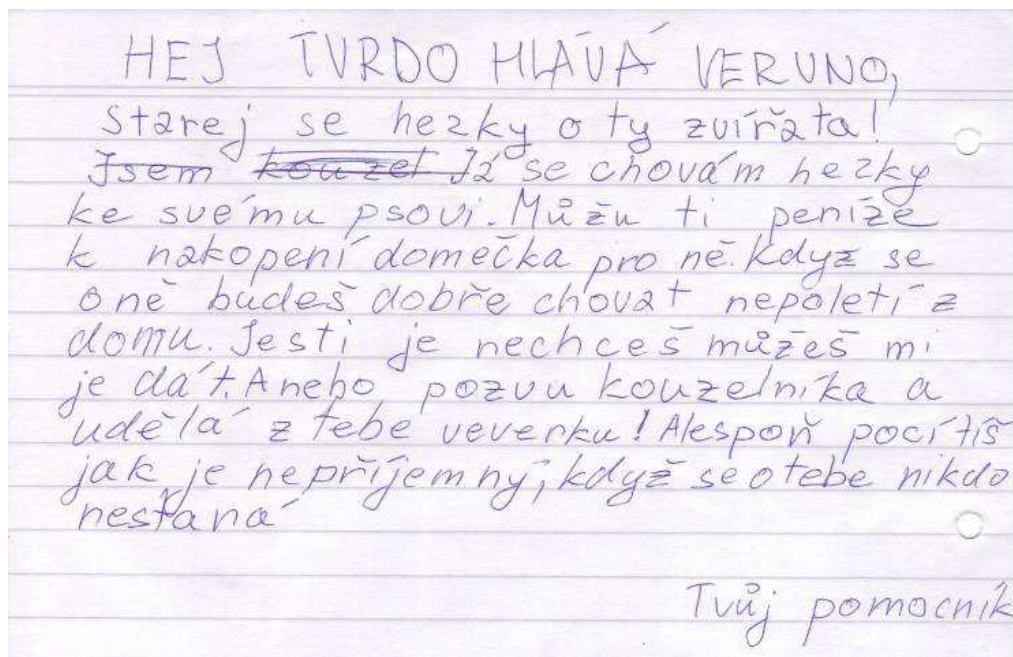 HEJ TVRDO HLAVÁ VERUNO,
Starej se hezky o ty zvířata!
Jsem kouzel Já se chovám hezky
ke svému psovi. Můžu ti peníze
k nakopení domečka pro ně. když se
o ně budeš dobře chovat nepoletí z
domu. Jesti je nechceš můžeš mi
je dát. Anebo pozvu kouzelníka a
udělá z tebe veverku! Alespoň pocítíš
jak je nepříjemný, když se o tebe nikdo
nestaná
Tvůj pomocník